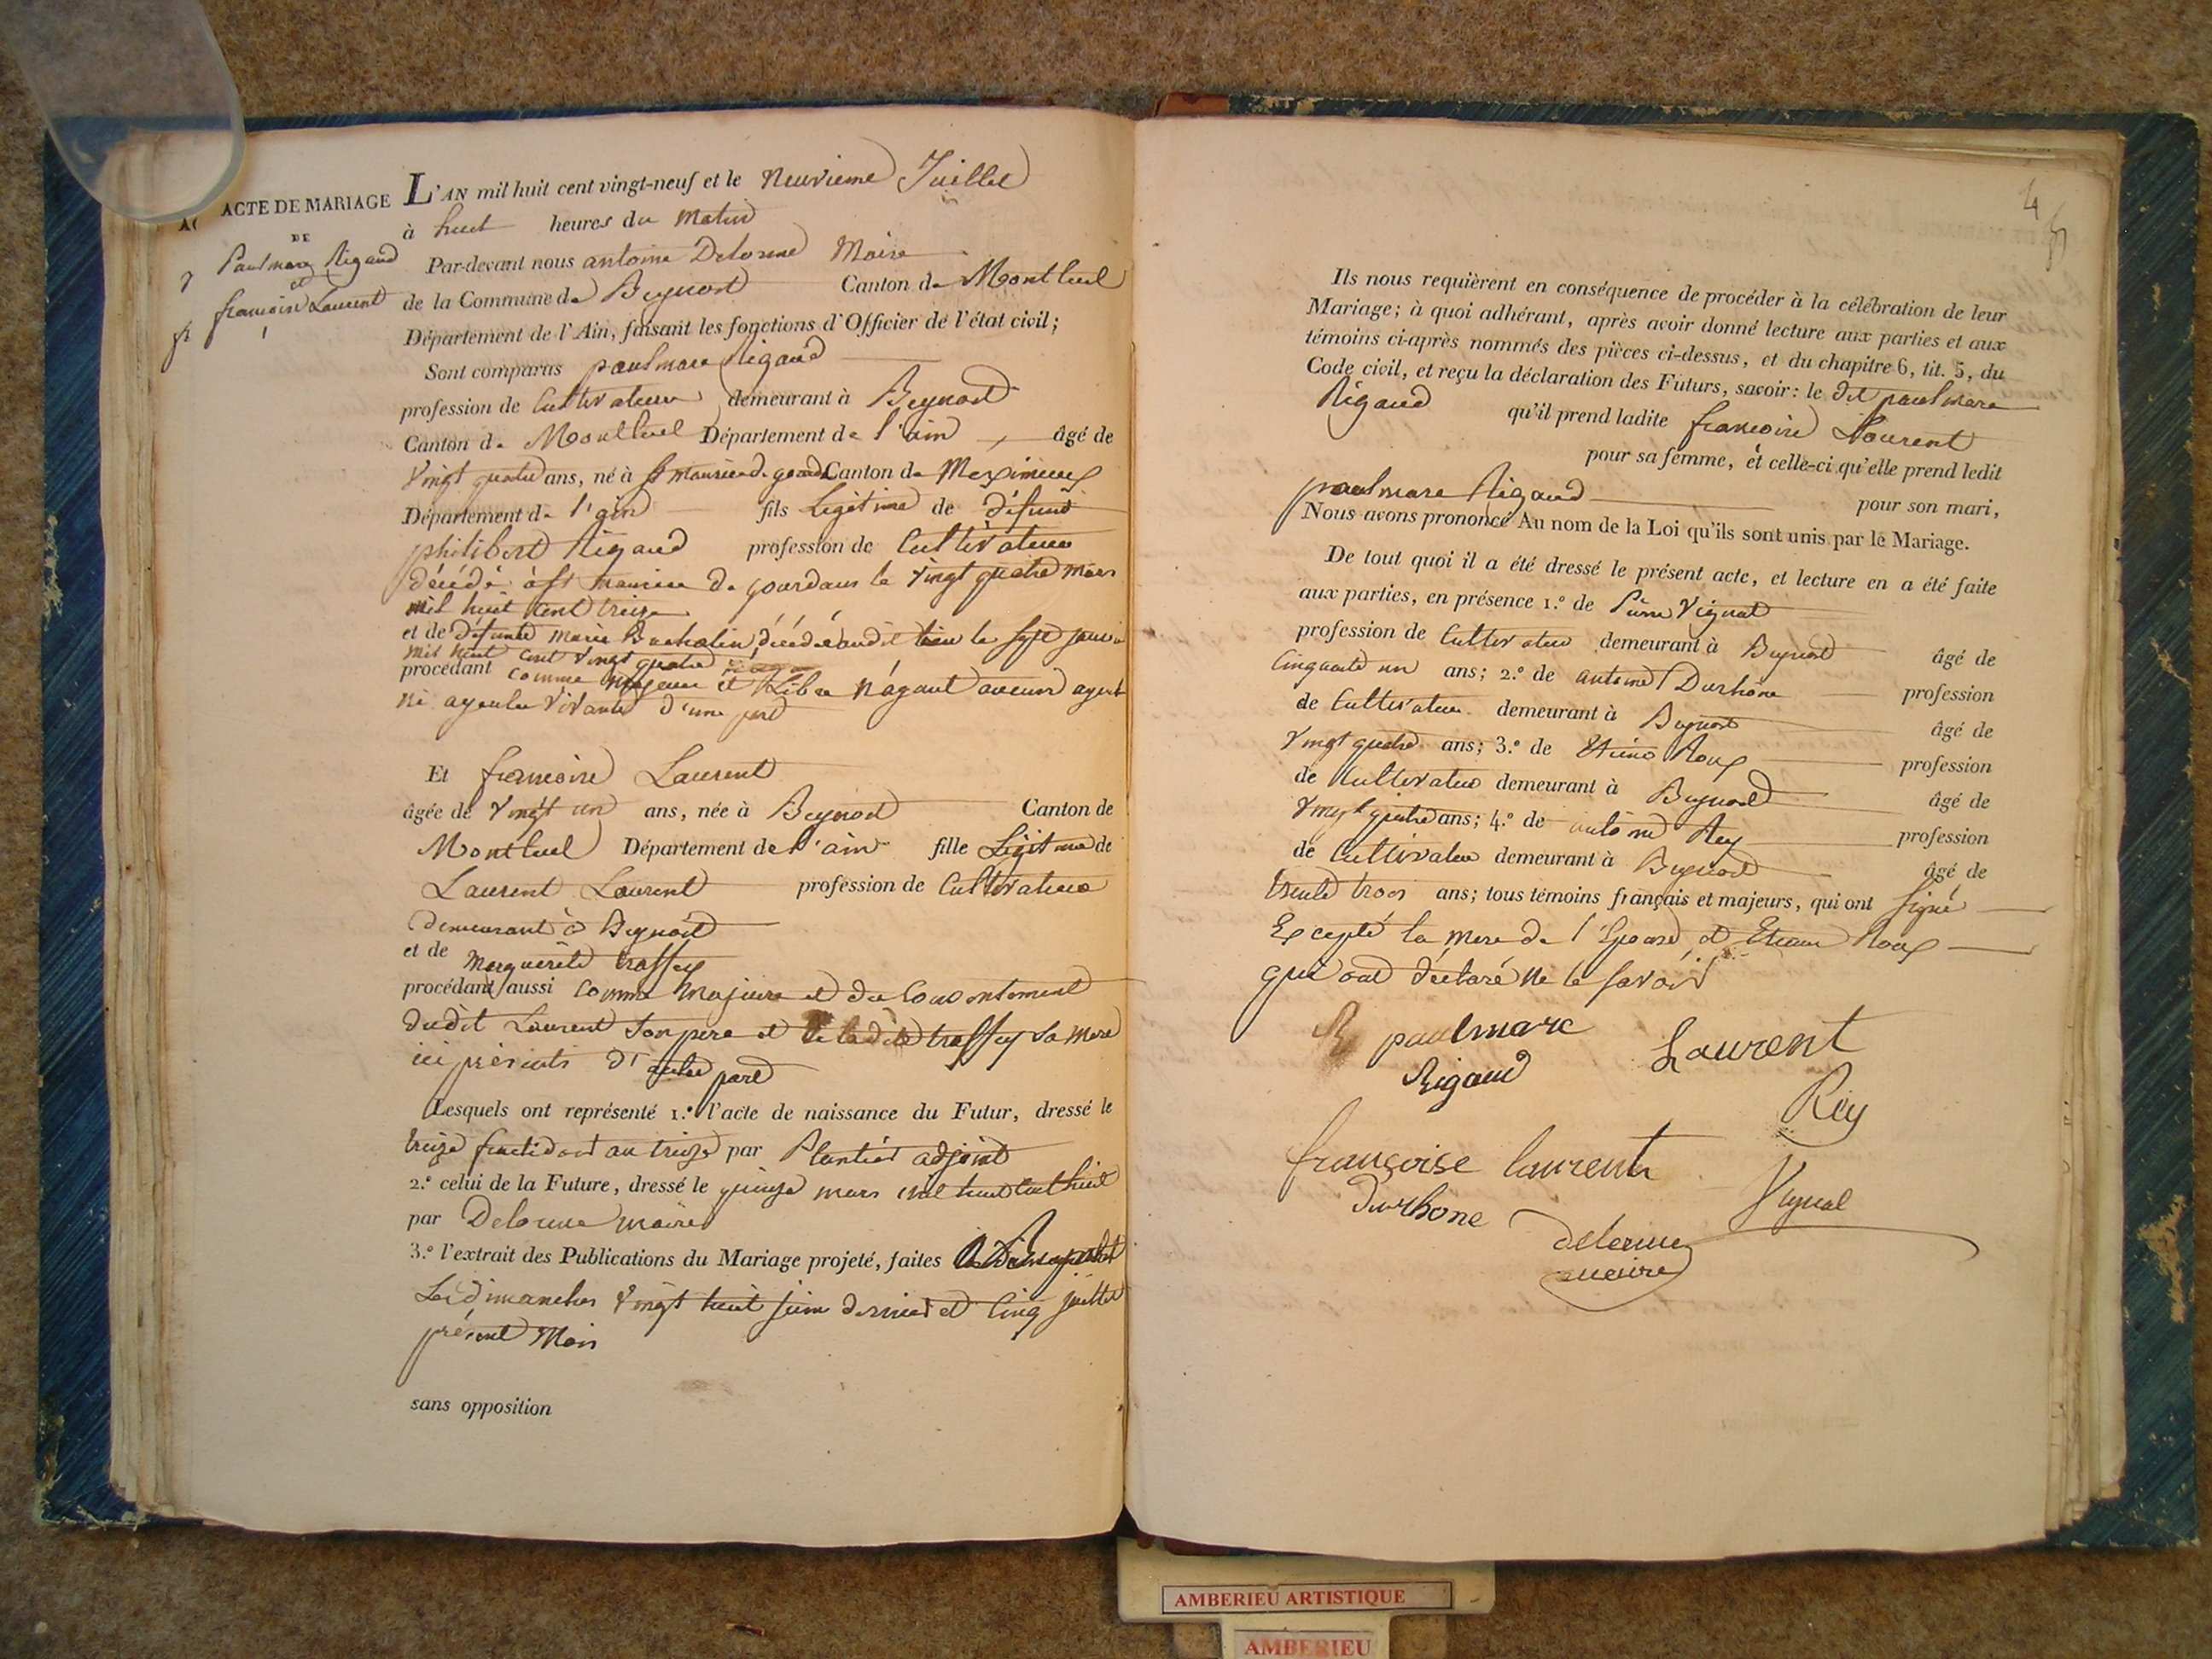 ACTE DE MARIAGE
DE
Paulmarc Rigaud
et
françoise Laurent
L'AN mil huit cent vingt-neuf et le neuvieme Juillet
à huit heures du matin
Par-devant nous antoine Delorme Maire
de la Commune de Beynost Canton de Montluel
Département de l'Ain, faisant les fonctions d'Officier de l'état civil;
Sont comparus paulmarc Rigaud
profession de Cultivateur demeurant à Beynost
Canton de Montluel Département de l'ain âgé de
Vingt quatre ans, né à St maurice de gourdans Canton de Meximieux
Département de l'ain fils Legitime de défunt
philibert Rigaud profession de Cultivateur
décédé à St maurice de gourdans le vingt quatre mars
mil huit cent treize
et de défunte marie décédée audit lieu le sept janvier
mil huit cent vingt quatre
procédant comme majeur et Libre n'ayant aucuns ayeuls
ni ayeules vivants d'une part
Et françoise Laurent
âgée de vingt un ans, née à Beynost Canton de
Montluel Département de l'ain fille Légitime de
Laurent Laurent profession de Cultivateur
demeurant à Beynost
et de Marguerite traffey
procédant aussi comme majeure et du consentement
dudit Laurent son pere et de ladite traffey sa mere
ici présents d'autre part
Lesquels ont représenté 1.º l'acte de naissance du Futur, dressé le
treize fructidor an treize par Plantier adjoint
2.º celui de la Future, dressé le quinze mars mil huit cent huit
par Delorme maire
3.º l'extrait des Publications du Mariage projeté, faites
Les dimanches vingt huit juin dernier et cinq juillet
présent mois
sans opposition
Ils nous requièrent en conséquence de procéder à la célébration de leur
Mariage; à quoi adhérant, après avoir donné lecture aux parties et aux
témoins ci-après nommés des pièces ci-dessus, et du chapitre 6, tit. 5, du
Code civil, et reçu la déclaration des Futurs, savoir: le dit paulmarc
Rigaud qu'il prend ladite françoise Laurent
pour sa femme, et celle-ci qu'elle prend ledit
paulmarc Rigaud pour son mari,
Nous avons prononcé Au nom de la Loi qu'ils sont unis par le Mariage.
De tout quoi il a été dressé le présent acte, et lecture en a été faite
aux parties, en présence 1.º de Pierre Vignal
profession de Cultivateur demeurant à Beynost âgé de
Cinquante un ans; 2.º de antoine Durhône profession
de Cultivateur demeurant à Beynost âgé de
Vingt quatre ans; 3.º de Etienne Roux profession
de Cultivateur demeurant à Beynost âgé de
Vingt quatre ans; 4.º de antoine Rey profession
de Cultivateur demeurant à Beynost âgé de
trente trois ans; tous témoins français et majeurs, qui ont Signé
Excepté la mere de l'Epouse et Etienne Roux
qui ont déclaré ne le savoir
R paulmarc
Rigaud
Laurent
Rey
françoise laurent
durhone
Vignal
delorme
maire
AMBERIEU ARTISTIQUE
AMBERIEU